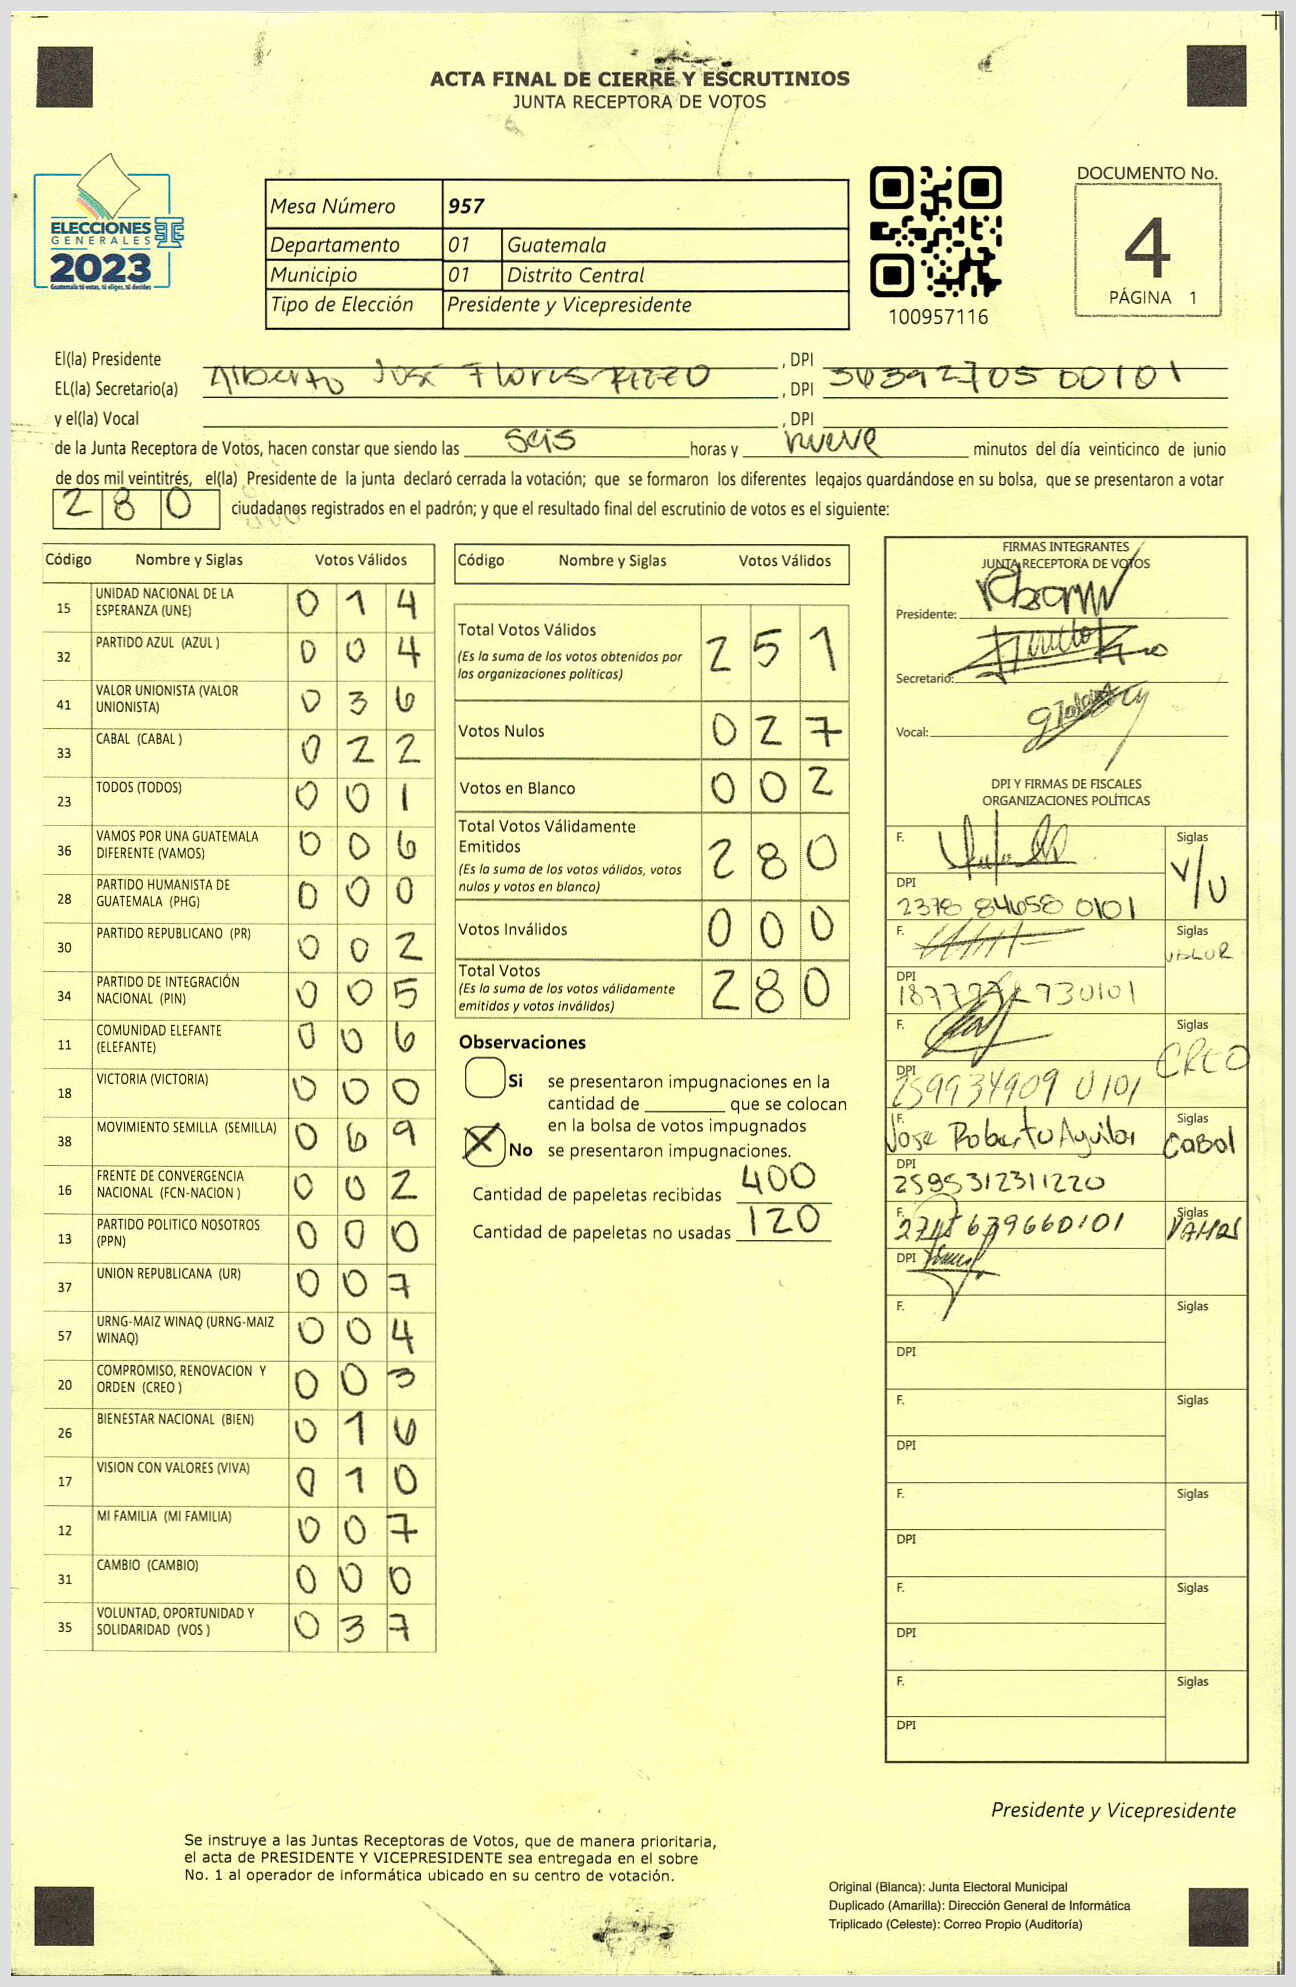 ACTA FINAL DE CIERRE Y ESCRUTINIOS
JUNTA RECEPTORA DE VOTOS
ELECCIONES
GENERALES
2023
Guatemala tú votas, tú eliges, tú decides
Mesa Número 957
Departamento 01 Guatemala
Municipio 01 Distrito Central
Tipo de Elección Presidente y Vicepresidente
100957116
DOCUMENTO No.
4
PÁGINA 1
El(la) Presidente , DPI
EL(la) Secretario(a) Alberto José Flores , DPI
y el(la) Vocal , DPI
de la Junta Receptora de Votos, hacen constar que siendo las seis horas y nueve minutos del día veinticinco de junio
de dos mil veintitrés, el(la) Presidente de la junta declaró cerrada la votación; que se formaron los diferentes legajos guardándose en su bolsa, que se presentaron a votar
280 ciudadanos registrados en el padrón; y que el resultado final del escrutinio de votos es el siguiente:
Código Nombre y Siglas Votos Válidos
15 UNIDAD NACIONAL DE LA ESPERANZA (UNE) 014
32 PARTIDO AZUL (AZUL ) 004
41 VALOR UNIONISTA (VALOR UNIONISTA) 036
33 CABAL (CABAL ) 022
23 TODOS (TODOS) 001
36 VAMOS POR UNA GUATEMALA DIFERENTE (VAMOS) 006
28 PARTIDO HUMANISTA DE GUATEMALA (PHG) 000
30 PARTIDO REPUBLICANO (PR) 002
34 PARTIDO DE INTEGRACIÓN NACIONAL (PIN) 005
11 COMUNIDAD ELEFANTE (ELEFANTE) 006
18 VICTORIA (VICTORIA) 000
38 MOVIMIENTO SEMILLA (SEMILLA) 069
16 FRENTE DE CONVERGENCIA NACIONAL (FCN-NACION ) 002
13 PARTIDO POLITICO NOSOTROS (PPN) 000
37 UNION REPUBLICANA (UR) 007
57 URNG-MAIZ WINAQ (URNG-MAIZ WINAQ) 004
20 COMPROMISO, RENOVACION Y ORDEN (CREO ) 003
26 BIENESTAR NACIONAL (BIEN) 016
17 VISION CON VALORES (VIVA) 010
12 MI FAMILIA (MI FAMILIA) 007
31 CAMBIO (CAMBIO) 000
35 VOLUNTAD, OPORTUNIDAD Y SOLIDARIDAD (VOS ) 037
Código Nombre y Siglas Votos Válidos
Total Votos Válidos 251
(Es la suma de los votos obtenidos por
las organizaciones políticas)
Votos Nulos 027
Votos en Blanco 002
Total Votos Válidamente
Emitidos 280
(Es la suma de los votos válidos, votos
nulos y votos en blanco)
Votos Inválidos 000
Total Votos 280
(Es la suma de los votos válidamente
emitidos y votos inválidos)
Observaciones
Si se presentaron impugnaciones en la
cantidad de ________ que se colocan
en la bolsa de votos impugnados
X No se presentaron impugnaciones.
Cantidad de papeletas recibidas 400
Cantidad de papeletas no usadas 120
FIRMAS INTEGRANTES
JUNTA RECEPTORA DE VOTOS
Presidente:
Secretario:
Vocal:
DPI Y FIRMAS DE FISCALES
ORGANIZACIONES POLÍTICAS
F. Siglas V/U
DPI 2378 84658 0101
F. Siglas VALOR
DPI
F. Siglas CREO
DPI 259934909 0101
F. Jose Roberto Aguilar Siglas Cabal
DPI 2595312311220
F. Siglas VAMOS
DPI
F. Siglas
DPI
F. Siglas
DPI
F. Siglas
DPI
F. Siglas
DPI
F. Siglas
DPI
Presidente y Vicepresidente
Se instruye a las Juntas Receptoras de Votos, que de manera prioritaria,
el acta de PRESIDENTE Y VICEPRESIDENTE sea entregada en el sobre
No. 1 al operador de informática ubicado en su centro de votación.
Original (Blanca): Junta Electoral Municipal
Duplicado (Amarilla): Dirección General de Informática
Triplicado (Celeste): Correo Propio (Auditoría)